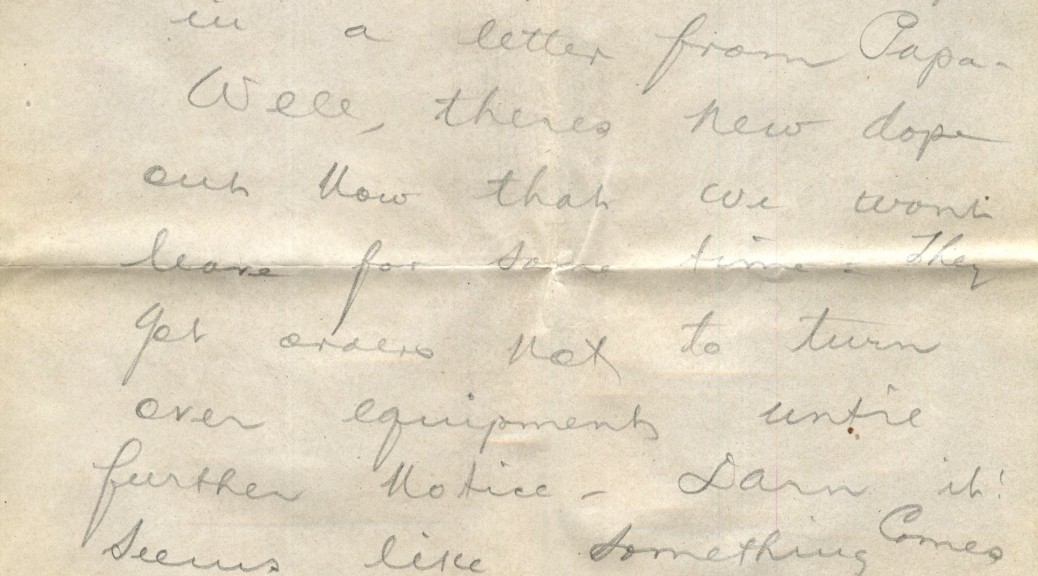 in a letter from Papa-
Well, theres new dope
out now that we wont
leave for some time - They
got orders not to turn
over equipment until
further notice - Darn it!
Seems like something Comes